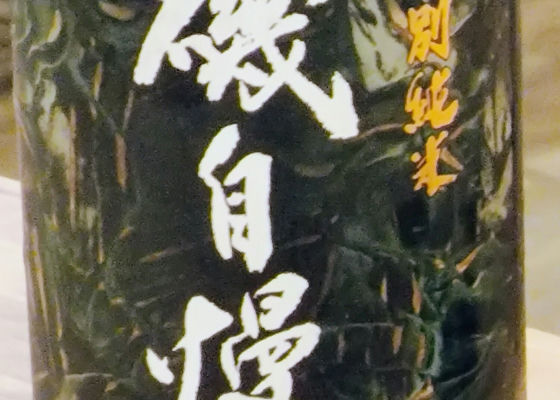 別純米
磯自慢